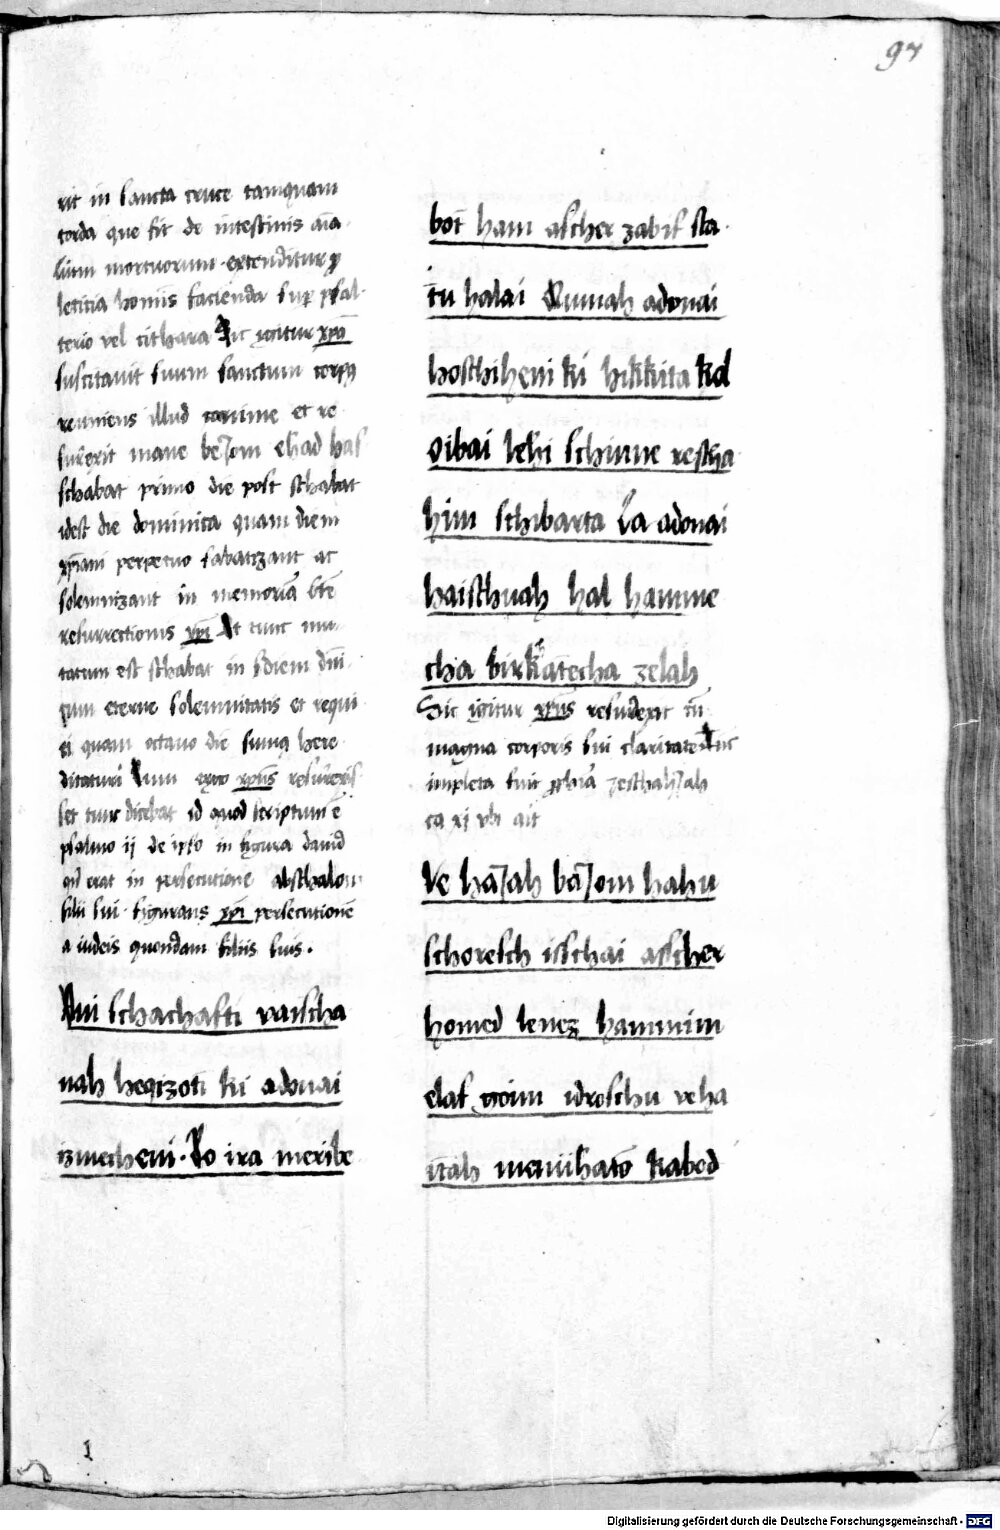 97
rit in sancta cruce tamquam
corda que fit de intestinis aīa
lium mortuorum extenditur ꝓ
leticia homīs facienda sup̄ psal
terio vel cithara Sic igitur xpō
suscitauit suum sanctum corpꝰ
reuniens illud anime et re
surexit mane beJom ehad has
schabat primo die post schabat
idest die dominica quam diem
xpiani perpetuo sabatizant ac
solemnizant in memoriā btē
resurrectionis xpi Et tunc mu
tatum est schabat in diem dni
cum eterne solemnitatis et requi
ei quam octauo die sumꝰ here
ditaturi Cum ergo xpūs resurexis
set tunc dicebat id quod scriptum ē
psalmo ij de ipso in figura dauid
qn̄ erat in persecutione abschalom
filii sui figurans xpi persecutionē
a iudeis quondam filiis suis.
Ani schachafti vaischa
nah heqizoti ki adonai
izmecheni. Lo ira meribe
bot ham ascher zabif sta
tu halai Kumah adonai
hoschiheni ki hikkita kol
oibai lehi schinne rescha
him schibarta La adonai
haischuah hal hamme
cha birkatecha zelah
Sic igitur xpūs resurexit cū
magna corporis sui claritate Tūc
impleta fuit ꝓphīa JeschahJah
ca xj vbi ait
Ve haJah baJom hahu
schoresch isschai asscher
homed lenez hammim
elaf goim idroschu veha
itah menuhato kabod
1
Digitalisierung gefördert durch die Deutsche Forschungsgemeinschaft - DFG